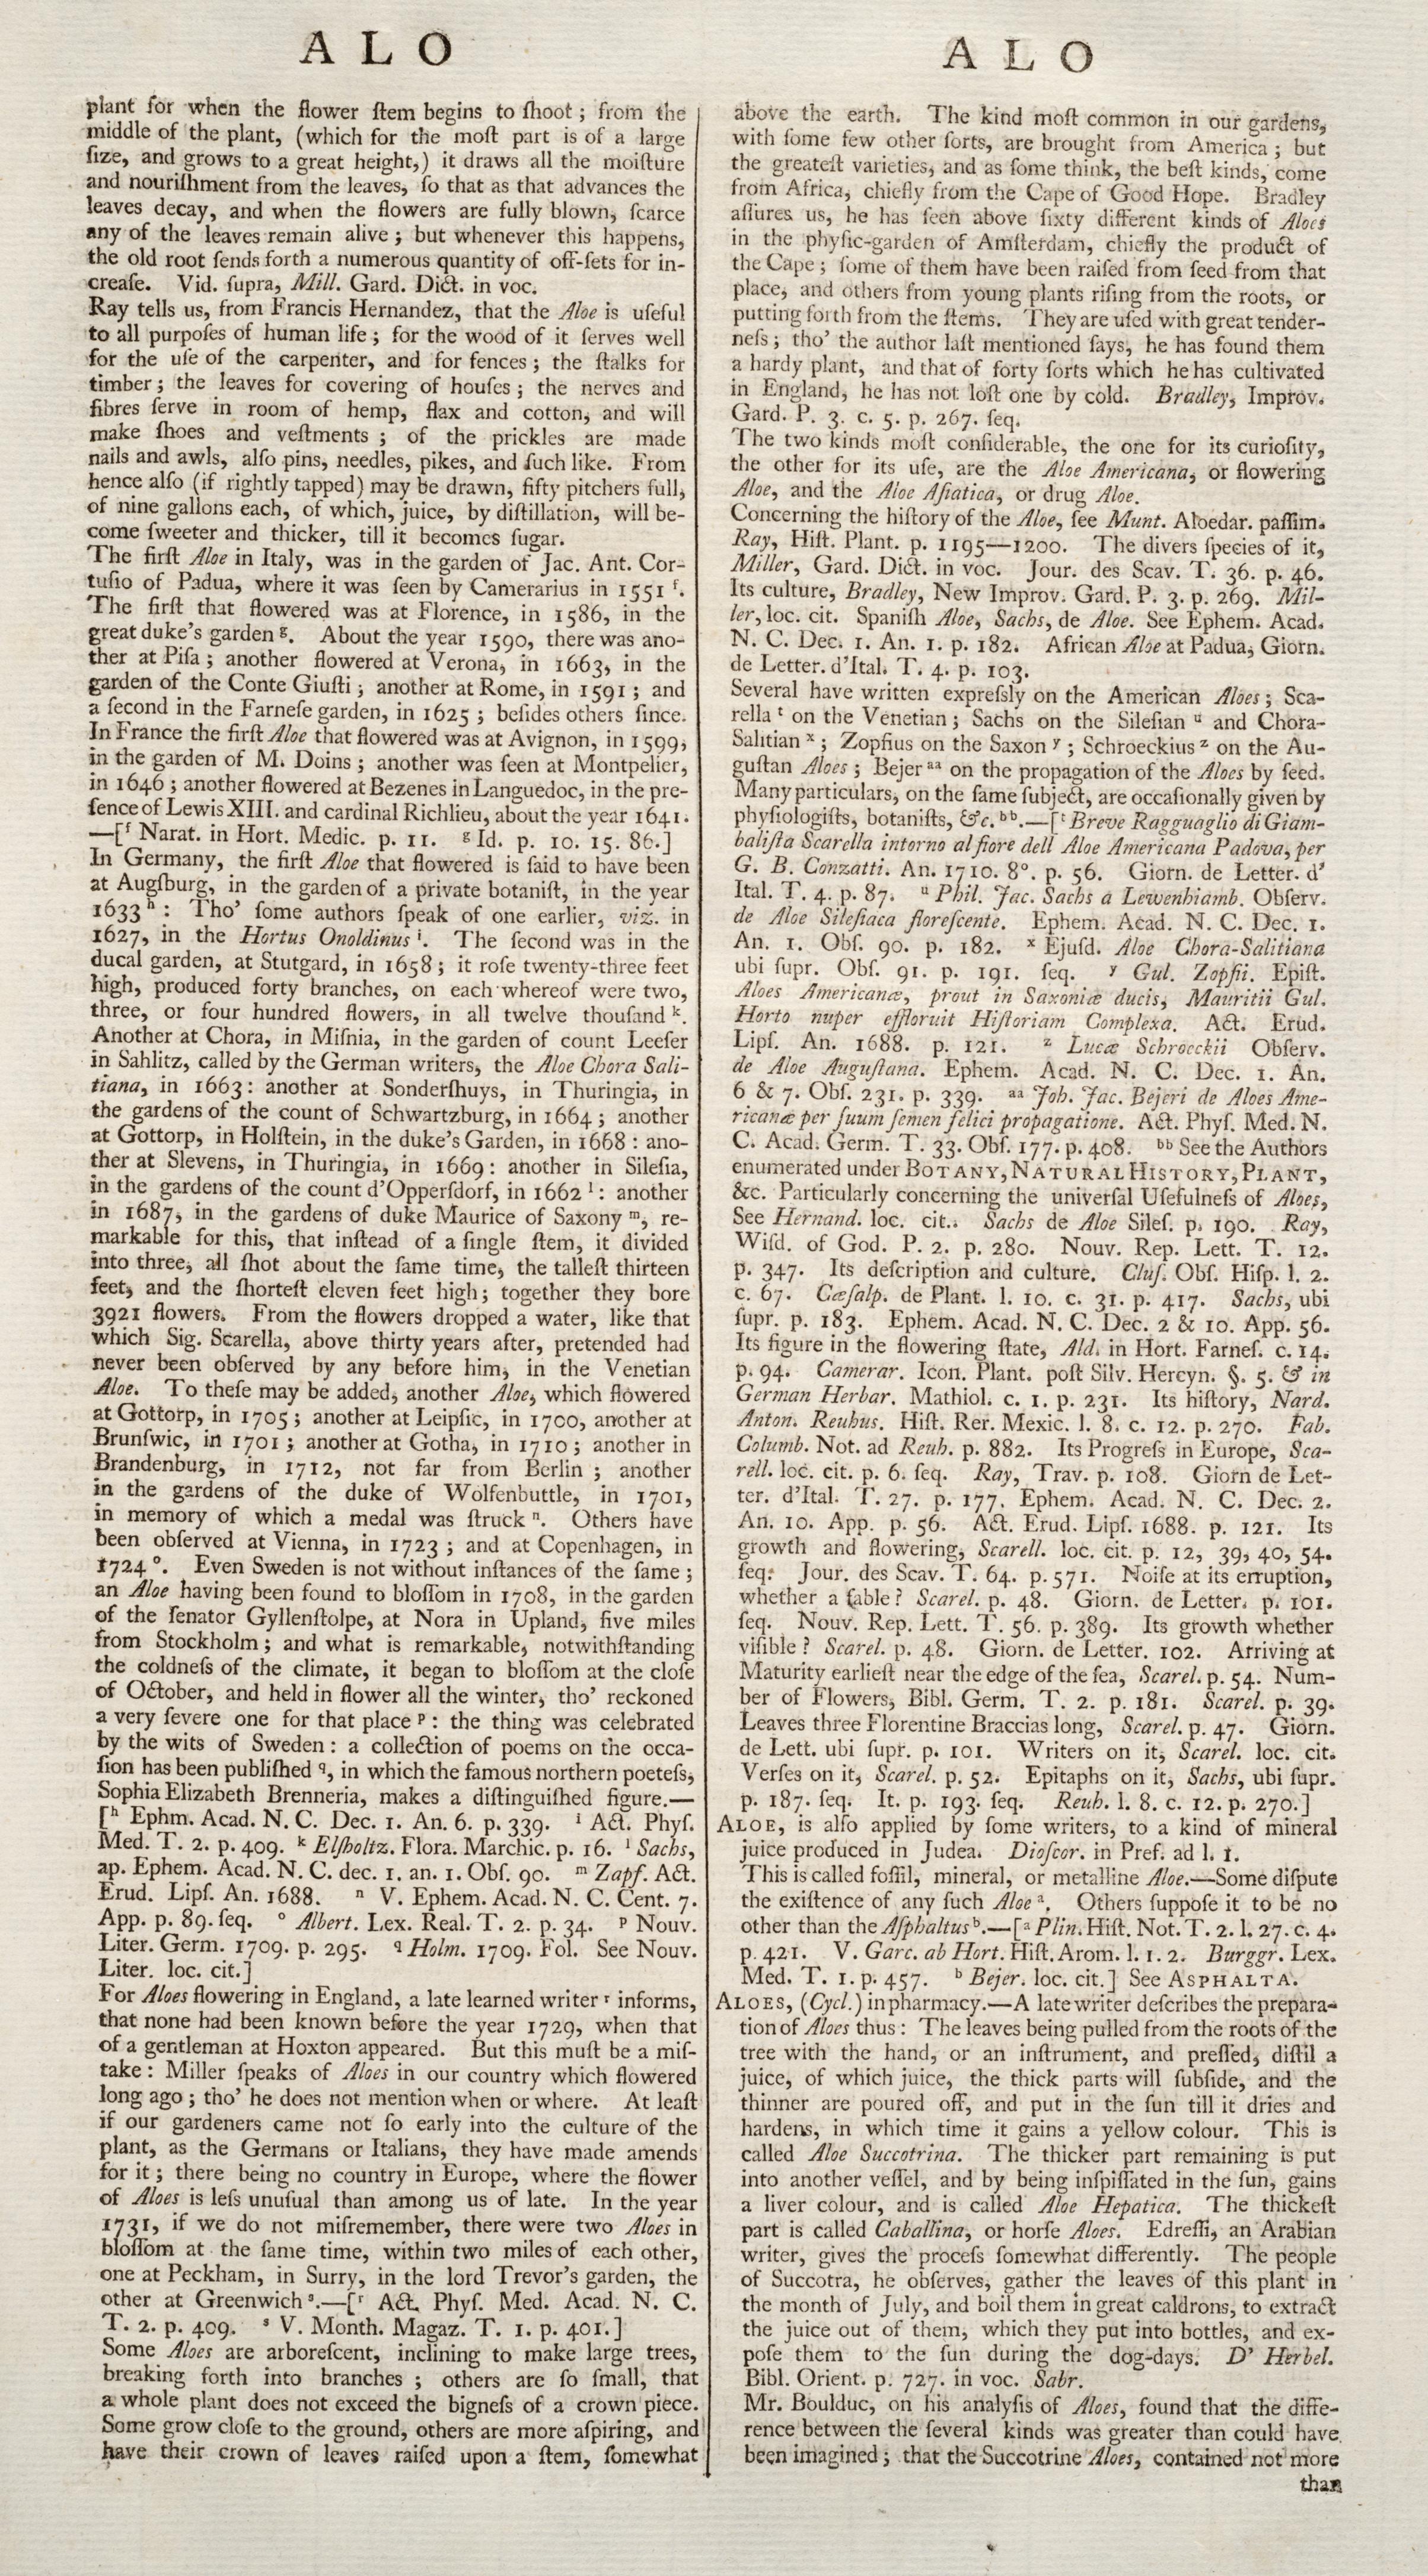 A L O
plant for when the flower ſtem begins to ſhoot; from the
middle of the plant, (which for the moſt part is of a large
ſize, and grows to a great height,) it draws all the moiſture
and nouriſhment from the leaves, ſo that as that advances the
leaves decay, and when the flowers are fully blown, ſcarce
any of the leaves remain alive; but whenever this happens,
the old root ſends forth a numerous quantity of off-ſets for in-
creaſe. Vid. ſupra, Mill. Gard. Dict. in voc.
Ray tells us, from Francis Hernandez, that the Aloe is uſeful
to all purpoſes of human life; for the wood of it ſerves well
for the uſe of the carpenter, and for fences; the ſtalks for
timber; the leaves for covering of houſes; the nerves and
fibres ſerve in room of hemp, flax and cotton, and will
make ſhoes and veſtments; of the prickles are made
nails and awls, alſo pins, needles, pikes, and ſuch like. From
hence alſo (if rightly tapped) may be drawn, fifty pitchers full,
of nine gallons each, of which, juice, by diſtillation, will be-
come ſweeter and thicker, till it becomes ſugar.
The firſt Aloe in Italy, was in the garden of Jac. Ant. Cor-
tuſio of Padua, where it was ſeen by Camerarius in 1551 f.
The firſt that flowered was at Florence, in 1586, in the
great duke's garden g. About the year 1590, there was ano-
ther at Piſa; another flowered at Verona, in 1663, in the
garden of the Conte Giuſti; another at Rome, in 1591; and
a ſecond in the Farneſe garden, in 1625; beſides others ſince.
In France the firſt Aloe that flowered was at Avignon, in 1599,
in the garden of M. Doins; another was ſeen at Montpelier,
in 1646; another flowered at Bezenes in Languedoc, in the pre-
ſence of Lewis XIII. and cardinal Richlieu, about the year 1641.
—[f Narat. in Hort. Medic. p. 11. g Id. p. 10. 15. 86.]
In Germany, the firſt Aloe that flowered is ſaid to have been
at Augſburg, in the garden of a private botaniſt, in the year
1633 h: Tho' ſome authors ſpeak of one earlier, viz. in
1627, in the Hortus Onoldinus i. The ſecond was in the
ducal garden, at Stutgard, in 1658; it roſe twenty-three feet
high, produced forty branches, on each whereof were two,
three, or four hundred flowers, in all twelve thouſand k.
Another at Chora, in Miſnia, in the garden of count Leeſer
in Sahlitz, called by the German writers, the Aloe Chora Sali-
tiana, in 1663: another at Sonderſhuys, in Thuringia, in
the gardens of the count of Schwartzburg, in 1664; another
at Gottorp, in Holſtein, in the duke's Garden, in 1668: ano-
ther at Slevens, in Thuringia, in 1669: another in Sileſia,
in the gardens of the count d'Opperſdorf, in 1662 l: another
in 1687, in the gardens of duke Maurice of Saxony m, re-
markable for this, that inſtead of a ſingle ſtem, it divided
into three, all ſhot about the ſame time, the talleſt thirteen
feet, and the ſhorteſt eleven feet high; together they bore
3921 flowers. From the flowers dropped a water, like that
which Sig. Scarella, above thirty years after, pretended had
never been obſerved by any before him, in the Venetian
Aloe. To theſe may be added, another Aloe, which flowered
at Gottorp, in 1705; another at Leipſic, in 1700, another at
Brunſwic, in 1701; another at Gotha, in 1710; another in
Brandenburg, in 1712, not far from Berlin; another
in the gardens of the duke of Wolfenbuttle, in 1701,
in memory of which a medal was ſtruck n. Others have
been obſerved at Vienna, in 1723; and at Copenhagen, in
1724 o. Even Sweden is not without inſtances of the ſame;
an Aloe having been found to bloſſom in 1708, in the garden
of the ſenator Gyllenſtolpe, at Nora in Upland, five miles
from Stockholm; and what is remarkable, notwithſtanding
the coldneſs of the climate, it began to bloſſom at the cloſe
of October, and held in flower all the winter, tho' reckoned
a very ſevere one for that place p: the thing was celebrated
by the wits of Sweden: a collection of poems on the occa-
ſion has been publiſhed q, in which the famous northern poeteſs,
Sophia Elizabeth Brenneria, makes a diſtinguiſhed figure.—
[h Ephm. Acad. N. C. Dec. 1. An. 6. p. 339. i Act. Phyſ.
Med. T. 2. p. 409. k Elſholtz. Flora. Marchic. p. 16. l Sachs,
ap. Ephem. Acad. N. C. dec. 1. an. 1. Obſ. 90. m Zapf. Act.
Erud. Lipſ. An. 1688. n V. Ephem. Acad. N. C. Cent. 7.
App. p. 89. ſeq. o Albert. Lex. Real. T. 2. p. 34. p Nouv.
Liter. Germ. 1709. p. 295. q Holm. 1709. Fol. See Nouv.
Liter. loc. cit.]
For Aloes flowering in England, a late learned writer r informs,
that none had been known before the year 1729, when that
of a gentleman at Hoxton appeared. But this muſt be a miſ-
take: Miller ſpeaks of Aloes in our country which flowered
long ago; tho' he does not mention when or where. At leaſt
if our gardeners came not ſo early into the culture of the
plant, as the Germans or Italians, they have made amends
for it; there being no country in Europe, where the flower
of Aloes is leſs unuſual than among us of late. In the year
1731, if we do not miſremember, there were two Aloes in
bloſſom at the ſame time, within two miles of each other,
one at Peckham, in Surry, in the lord Trevor's garden, the
other at Greenwich s.—[r Act. Phyſ. Med. Acad. N. C.
T. 2. p. 409. s V. Month. Magaz. T. 1. p. 401.]
Some Aloes are arboreſcent, inclining to make large trees,
breaking forth into branches; others are ſo ſmall, that
a whole plant does not exceed the bigneſs of a crown piece.
Some grow cloſe to the ground, others are more aſpiring, and
have their crown of leaves raiſed upon a ſtem, ſomewhat
A L O
above the earth. The kind moſt common in our gardens,
with ſome few other ſorts, are brought from America; but
the greateſt varieties, and as ſome think, the beſt kinds, come
from Africa, chiefly from the Cape of Good Hope. Bradley
aſſures us, he has ſeen above ſixty different kinds of Aloes
in the phyſic-garden of Amſterdam, chiefly the product of
the Cape; ſome of them have been raiſed from ſeed from that
place, and others from young plants riſing from the roots, or
putting forth from the ſtems. They are uſed with great tender-
neſs; tho' the author laſt mentioned ſays, he has found them
a hardy plant, and that of forty ſorts which he has cultivated
in England, he has not loſt one by cold. Bradley, Improv.
Gard. P. 3. c. 5. p. 267. ſeq.
The two kinds moſt conſiderable, the one for its curioſity,
the other for its uſe, are the Aloe Americana, or flowering
Aloe, and the Aloe Aſiatica, or drug Aloe.
Concerning the hiſtory of the Aloe, ſee Munt. Aloedar. paſſim.
Ray, Hiſt. Plant. p. 1195—1200. The divers ſpecies of it,
Miller, Gard. Dict. in voc. Jour. des Scav. T. 36. p. 46.
Its culture, Bradley, New Improv. Gard. P. 3. p. 269. Mil-
ler, loc. cit. Spaniſh Aloe, Sachs, de Aloe. See Ephem. Acad.
N. C. Dec. 1. An. 1. p. 182. African Aloe at Padua, Giorn.
de Letter. d'Ital. T. 4. p. 103.
Several have written expreſsly on the American Aloes; Sca-
rella t on the Venetian; Sachs on the Sileſian u and Chora-
Salitian x; Zopfius on the Saxon y; Schroeckius z on the Au-
guſtan Aloes; Bejer aa on the propagation of the Aloes by ſeed.
Many particulars, on the ſame ſubject, are occaſionally given by
phyſiologiſts, botaniſts, &c. bb.—[t Breve Ragguaglio di Giam-
baliſta Scarella intorno al fiore dell Aloe Americana Padova, per
G. B. Conzatti. An. 1710. 8°. p. 56. Giorn. de Letter. d'
Ital. T. 4. p. 87. u Phil. Jac. Sachs a Lewenhiamb. Obſerv.
de Aloe Sileſiaca floreſcente. Ephem. Acad. N. C. Dec. 1.
An. 1. Obſ. 90. p. 182. x Ejuſd. Aloe Chora-Salitiana
ubi ſupr. Obſ. 91. p. 191. ſeq. y Gul. Zopfii. Epiſt.
Aloes Americanæ, prout in Saxoniæ ducis, Mauritii Gul.
Horto nuper effloruit Hiſtoriam Complexa. Act. Erud.
Lipſ. An. 1688. p. 121. z Lucæ Schroeckii Obſerv.
de Aloe Auguſtana. Ephem. Acad. N. C. Dec. 1. An.
6 & 7. Obſ. 231. p. 339. aa Joh. Jac. Bejeri de Aloes Ame-
ricanæ per ſuum ſemen felici propagatione. Act. Phyſ. Med. N.
C. Acad. Germ. T. 33. Obſ. 177. p. 408. bb See the Authors
enumerated under BOTANY, NATURAL HISTORY, PLANT,
&c. Particularly concerning the univerſal Uſefulneſs of Aloes,
See Hernand. loc. cit. Sachs de Aloe Sileſ. p. 190. Ray,
Wiſd. of God. P. 2. p. 280. Nouv. Rep. Lett. T. 12.
p. 347. Its deſcription and culture. Cluſ. Obſ. Hiſp. l. 2.
c. 67. Cæſalp. de Plant. l. 10. c. 31. p. 417. Sachs, ubi
ſupr. p. 183. Ephem. Acad. N. C. Dec. 2 & 10. App. 56.
Its figure in the flowering ſtate, Ald. in Hort. Farneſ. c. 14.
p. 94. Camerar. Icon. Plant. poſt Silv. Hercyn. §. 5. & in
German Herbar. Mathiol. c. 1. p. 231. Its hiſtory, Nard.
Anton. Reuhus. Hiſt. Rer. Mexic. l. 8. c. 12. p. 270. Fab.
Columb. Not. ad Reuh. p. 882. Its Progreſs in Europe, Sca-
rell. loc. cit. p. 6. ſeq. Ray, Trav. p. 108. Giorn de Let-
ter. d'Ital. T. 27. p. 177. Ephem. Acad. N. C. Dec. 2.
An. 10. App. p. 56. Act. Erud. Lipſ. 1688. p. 121. Its
growth and flowering, Scarell. loc. cit. p. 12, 39, 40, 54.
ſeq. Jour. des Scav. T. 64. p. 571. Noiſe at its erruption,
whether a fable? Scarel. p. 48. Giorn. de Letter. p. 101.
ſeq. Nouv. Rep. Lett. T. 56. p. 389. Its growth whether
viſible? Scarel. p. 48. Giorn. de Letter. 102. Arriving at
Maturity earlieſt near the edge of the ſea, Scarel. p. 54. Num-
ber of Flowers, Bibl. Germ. T. 2. p. 181. Scarel. p. 39.
Leaves three Florentine Braccias long, Scarel. p. 47. Giorn.
de Lett. ubi ſupr. p. 101. Writers on it, Scarel. loc. cit.
Verſes on it, Scarel. p. 52. Epitaphs on it, Sachs, ubi ſupr.
p. 187. ſeq. It. p. 193. ſeq. Reuh. l. 8. c. 12. p. 270.]
ALOE, is alſo applied by ſome writers, to a kind of mineral
juice produced in Judea. Dioſcor. in Pref. ad l. 1.
This is called foſſil, mineral, or metalline Aloe.—Some diſpute
the exiſtence of any ſuch Aloe a. Others ſuppoſe it to be no
other than the Aſphaltus b.—[a Plin. Hiſt. Not. T. 2. l. 27. c. 4.
p. 421. V. Garc. ab Hort. Hiſt. Arom. l. 1. 2. Burggr. Lex.
Med. T. 1. p. 457. b Bejer. loc. cit.] See ASPHALTA.
ALOES, (Cycl.) in pharmacy.—A late writer deſcribes the prepara-
tion of Aloes thus: The leaves being pulled from the roots of the
tree with the hand, or an inſtrument, and preſſed, diſtil a
juice, of which juice, the thick parts will ſubſide, and the
thinner are poured off, and put in the ſun till it dries and
hardens, in which time it gains a yellow colour. This is
called Aloe Succotrina. The thicker part remaining is put
into another veſſel, and by being inſpiſſated in the ſun, gains
a liver colour, and is called Aloe Hepatica. The thickeſt
part is called Caballina, or horſe Aloes. Edreſſi, an Arabian
writer, gives the proceſs ſomewhat differently. The people
of Succotra, he obſerves, gather the leaves of this plant in
the month of July, and boil them in great caldrons, to extract
the juice out of them, which they put into bottles, and ex-
poſe them to the ſun during the dog-days. D' Herbel.
Bibl. Orient. p. 727. in voc. Sabr.
Mr. Boulduc, on his analyſis of Aloes, found that the diffe-
rence between the ſeveral kinds was greater than could have
been imagined; that the Succotrine Aloes, contained not more
than